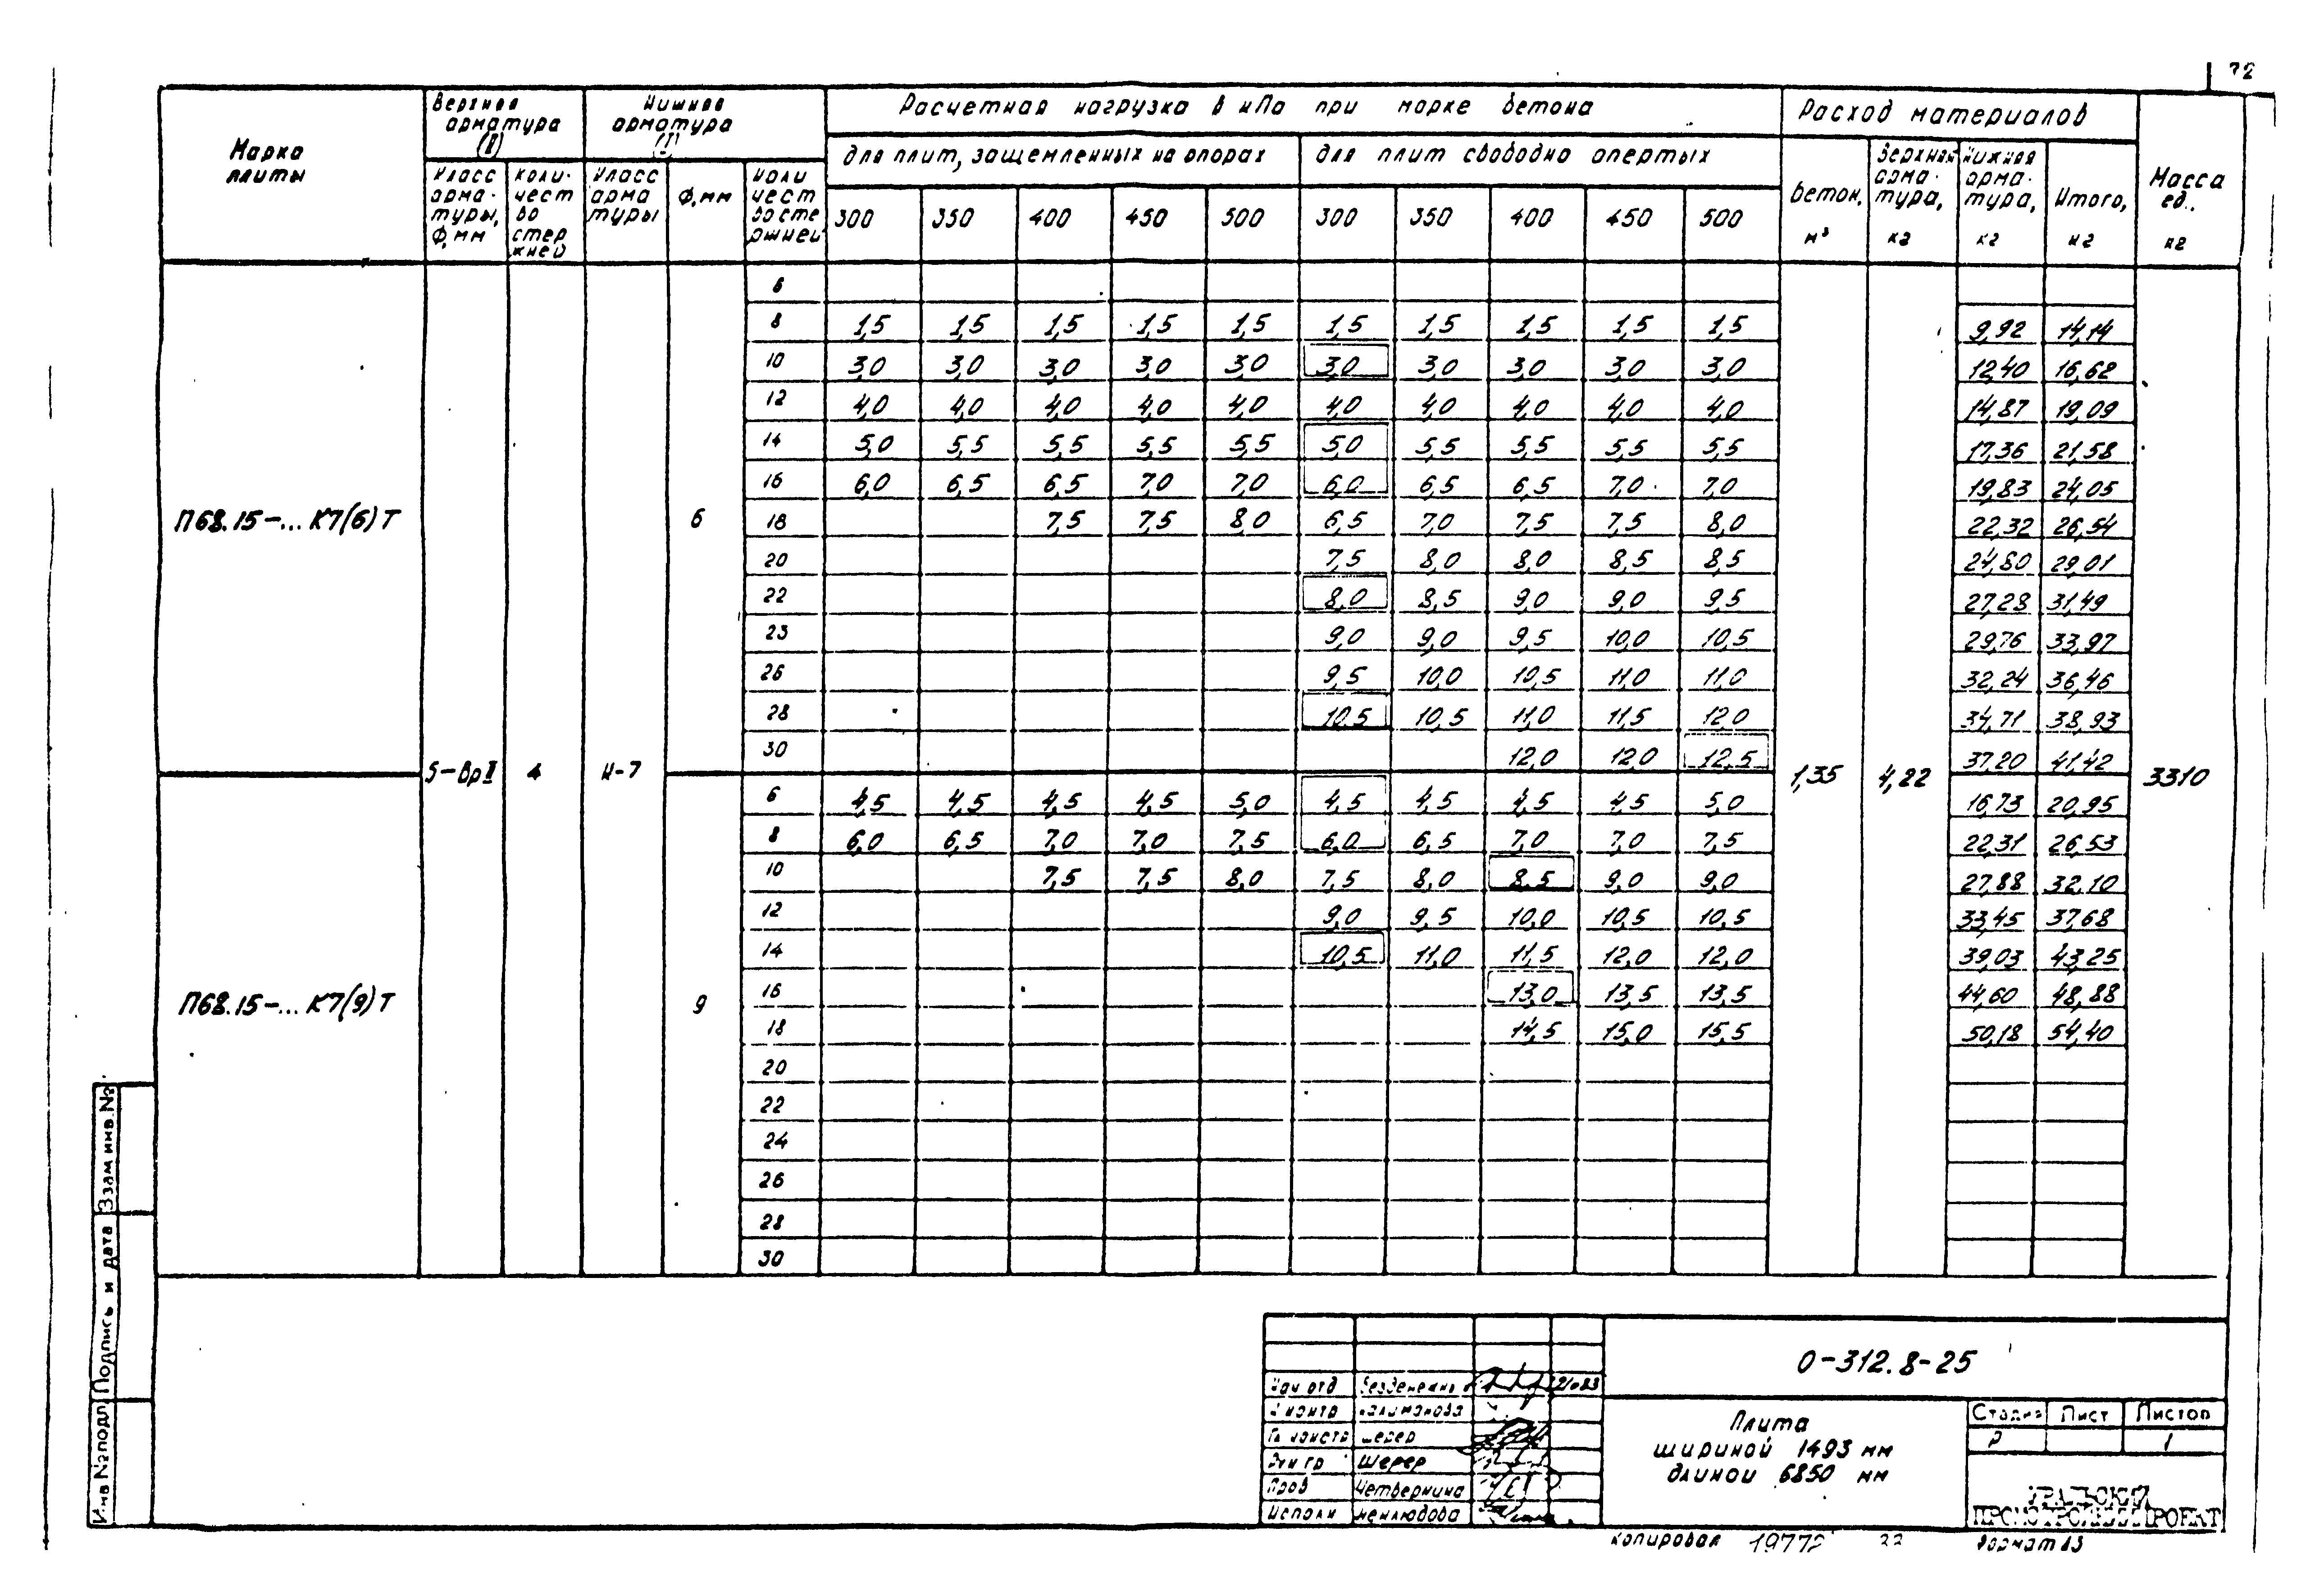 72
Марка плиты
Верхняя арматура (II)
Нижняя арматура (I)
Расчетная нагрузка в кПа при марке бетона
Расход материалов
Масса ед., кг
для плит, защемленных на опорах
для плит свободно опертых
Класс арматуры, Ф, мм
Количество стержней
Класс арматуры
Ф, мм
Количество стержней
300 350 400 450 500 300 350 400 450 500
Бетон, м³
Верхняя арматура, кг
Нижняя арматура, кг
Итого, кг
П68.15-... К7(6)Т
5-ВрI 4 К-7 6
1,35 4,22 3310
6
8 1,5 1,5 1,5 1,5 1,5 1,5 1,5 1,5 1,5 1,5 9,92 14,14
10 3,0 3,0 3,0 3,0 3,0 3,0 3,0 3,0 3,0 3,0 12,40 16,62
12 4,0 4,0 4,0 4,0 4,0 4,0 4,0 4,0 4,0 4,0 14,87 19,09
14 5,0 5,5 5,5 5,5 5,5 5,0 5,5 5,5 5,5 5,5 17,36 21,58
16 6,0 6,5 6,5 7,0 7,0 6,0 6,5 6,5 7,0 7,0 19,83 24,05
18 7,5 7,5 8,0 6,5 7,0 7,5 7,5 8,0 22,32 26,54
20 7,5 8,0 8,0 8,5 8,5 24,80 29,01
22 8,0 8,5 9,0 9,0 9,5 27,28 31,49
23 9,0 9,0 9,5 10,0 10,5 29,76 33,97
26 9,5 10,0 10,5 11,0 11,0 32,24 36,46
28 10,5 10,5 11,0 11,5 12,0 34,71 38,93
30 12,0 12,0 12,5 37,20 41,42
П68.15-... К7(9)Т
9
6 4,5 4,5 4,5 4,5 5,0 4,5 4,5 4,5 4,5 5,0 16,73 20,95
8 6,0 6,5 7,0 7,0 7,5 6,0 6,5 7,0 7,0 7,5 22,31 26,53
10 7,5 7,5 8,0 7,5 8,0 8,5 9,0 9,0 27,88 32,10
12 9,0 9,5 10,0 10,5 10,5 33,45 37,68
14 10,5 11,0 11,5 12,0 12,0 39,03 43,25
16 13,0 13,5 13,5 44,60 48,88
18 14,5 15,0 15,5 50,18 54,40
20
22
24
26
28
30
Инв № подл
Подпись и дата
Взам инв. №
О-312.8-25
Нач отд
Н контр
Гл констр Шерер
Рук гр Шерер
Пров Четвернина
Исполн
Плита
шириной 1493 мм
длиной 6850 мм
Стадия Лист Листов
Р 1
УРАЛЬСКИЙ
ПРОМСТРОЙНИИПРОЕКТ
Копировал 19772 33 Формат А3